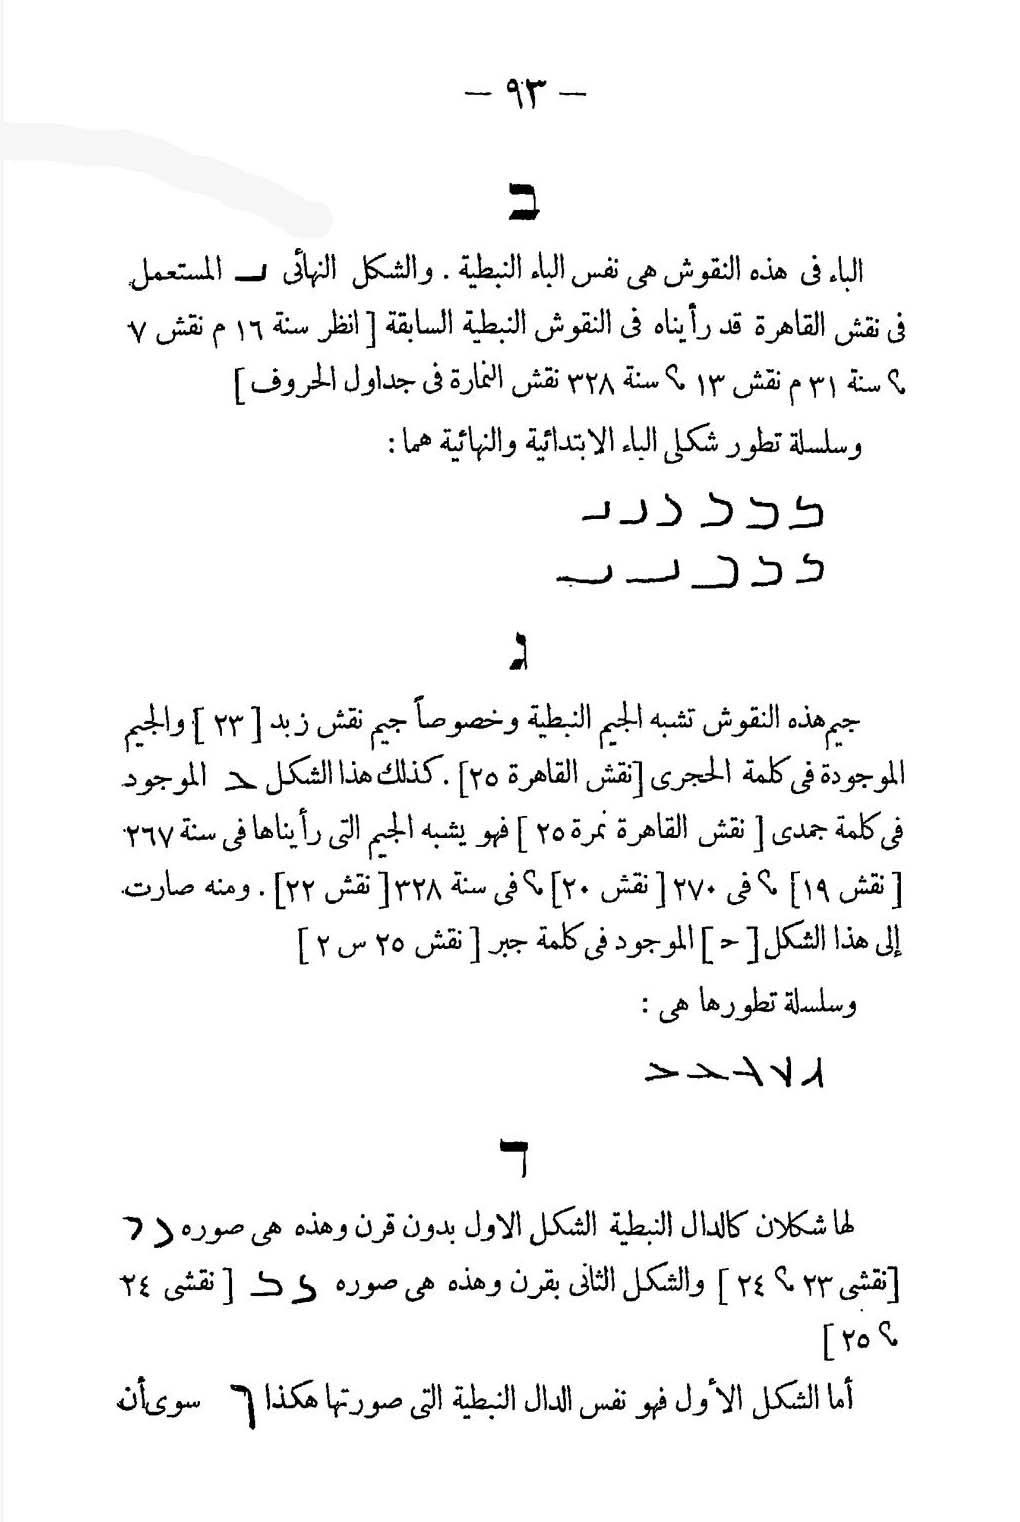 — ٩٣ —
ב
الباء فى هذه النقوش هى نفس الباء النبطية . والشكل النهائى المستعمل
فى نقش القاهرة قد رأيناه فى النقوش النبطية السابقة [ انظر سنة ١٦ م نقش ٧
؟ سنة ٣١ م نقش ١٣ ؟ سنة ٣٢٨ نقش النمارة فى جداول الحروف ]
وسلسلة تطور شكلى الباء الابتدائية والنهائية هما :
ג
جيم هذه النقوش تشبه الجيم النبطية وخصوصاً جيم نقش زبد [ ٢٣ ] والجيم
الموجودة فى كلمة الحجرى [نقش القاهرة ٢٥] . كذلك هذا الشكل الموجود
فى كلمة جمدى [ نقش القاهرة نمرة ٢٥ ] فهو يشبه الجيم التى رأيناها فى سنة ٢٦٧
[ نقش ١٩ ] ؟ فى ٢٧٠ [ نقش ٢٠ ] ؟ فى سنة ٣٢٨ [ نقش ٢٢ ] . ومنه صارت
إلى هذا الشكل [ ﺣ ] الموجود فى كلمة جبر [ نقش ٢٥ س ٢ ]
وسلسلة تطورها هى :
ד
لها شكلان كالدال النبطية الشكل الاول بدون قرن وهذه هى صوره
[نقشى ٢٣ ؟ ٢٤ ] والشكل الثانى بقرن وهذه هى صوره [ نقشى ٢٤
؟ ٢٥ ]
أما الشكل الأول فهو نفس الدال النبطية التى صورتها هكذا سوى أن